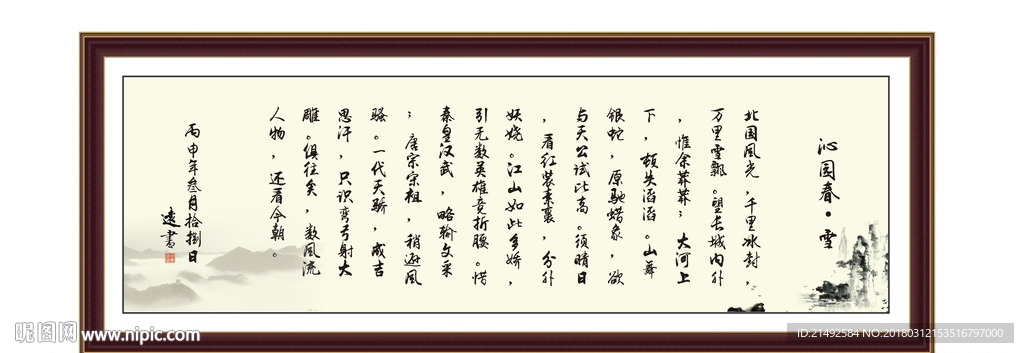 沁园春·雪
北国风光，千里冰封，
万里雪飘。望长城内外
，惟余莽莽；大河上
下，顿失滔滔。山舞
银蛇，原驰蜡象，欲
与天公试比高。须晴日
，看红装素裹，分外
妖娆。江山如此多娇，
引无数英雄竞折腰。惜
秦皇汉武，略输文采
；唐宗宋祖，稍逊风
骚。一代天骄，成吉
思汗，只识弯弓射大
雕。俱往矣，数风流
人物，还看今朝。
丙申年叁月拾捌日
逵書
昵图网 www.nipic.com
ID:21492584 NO:20180312153516797000